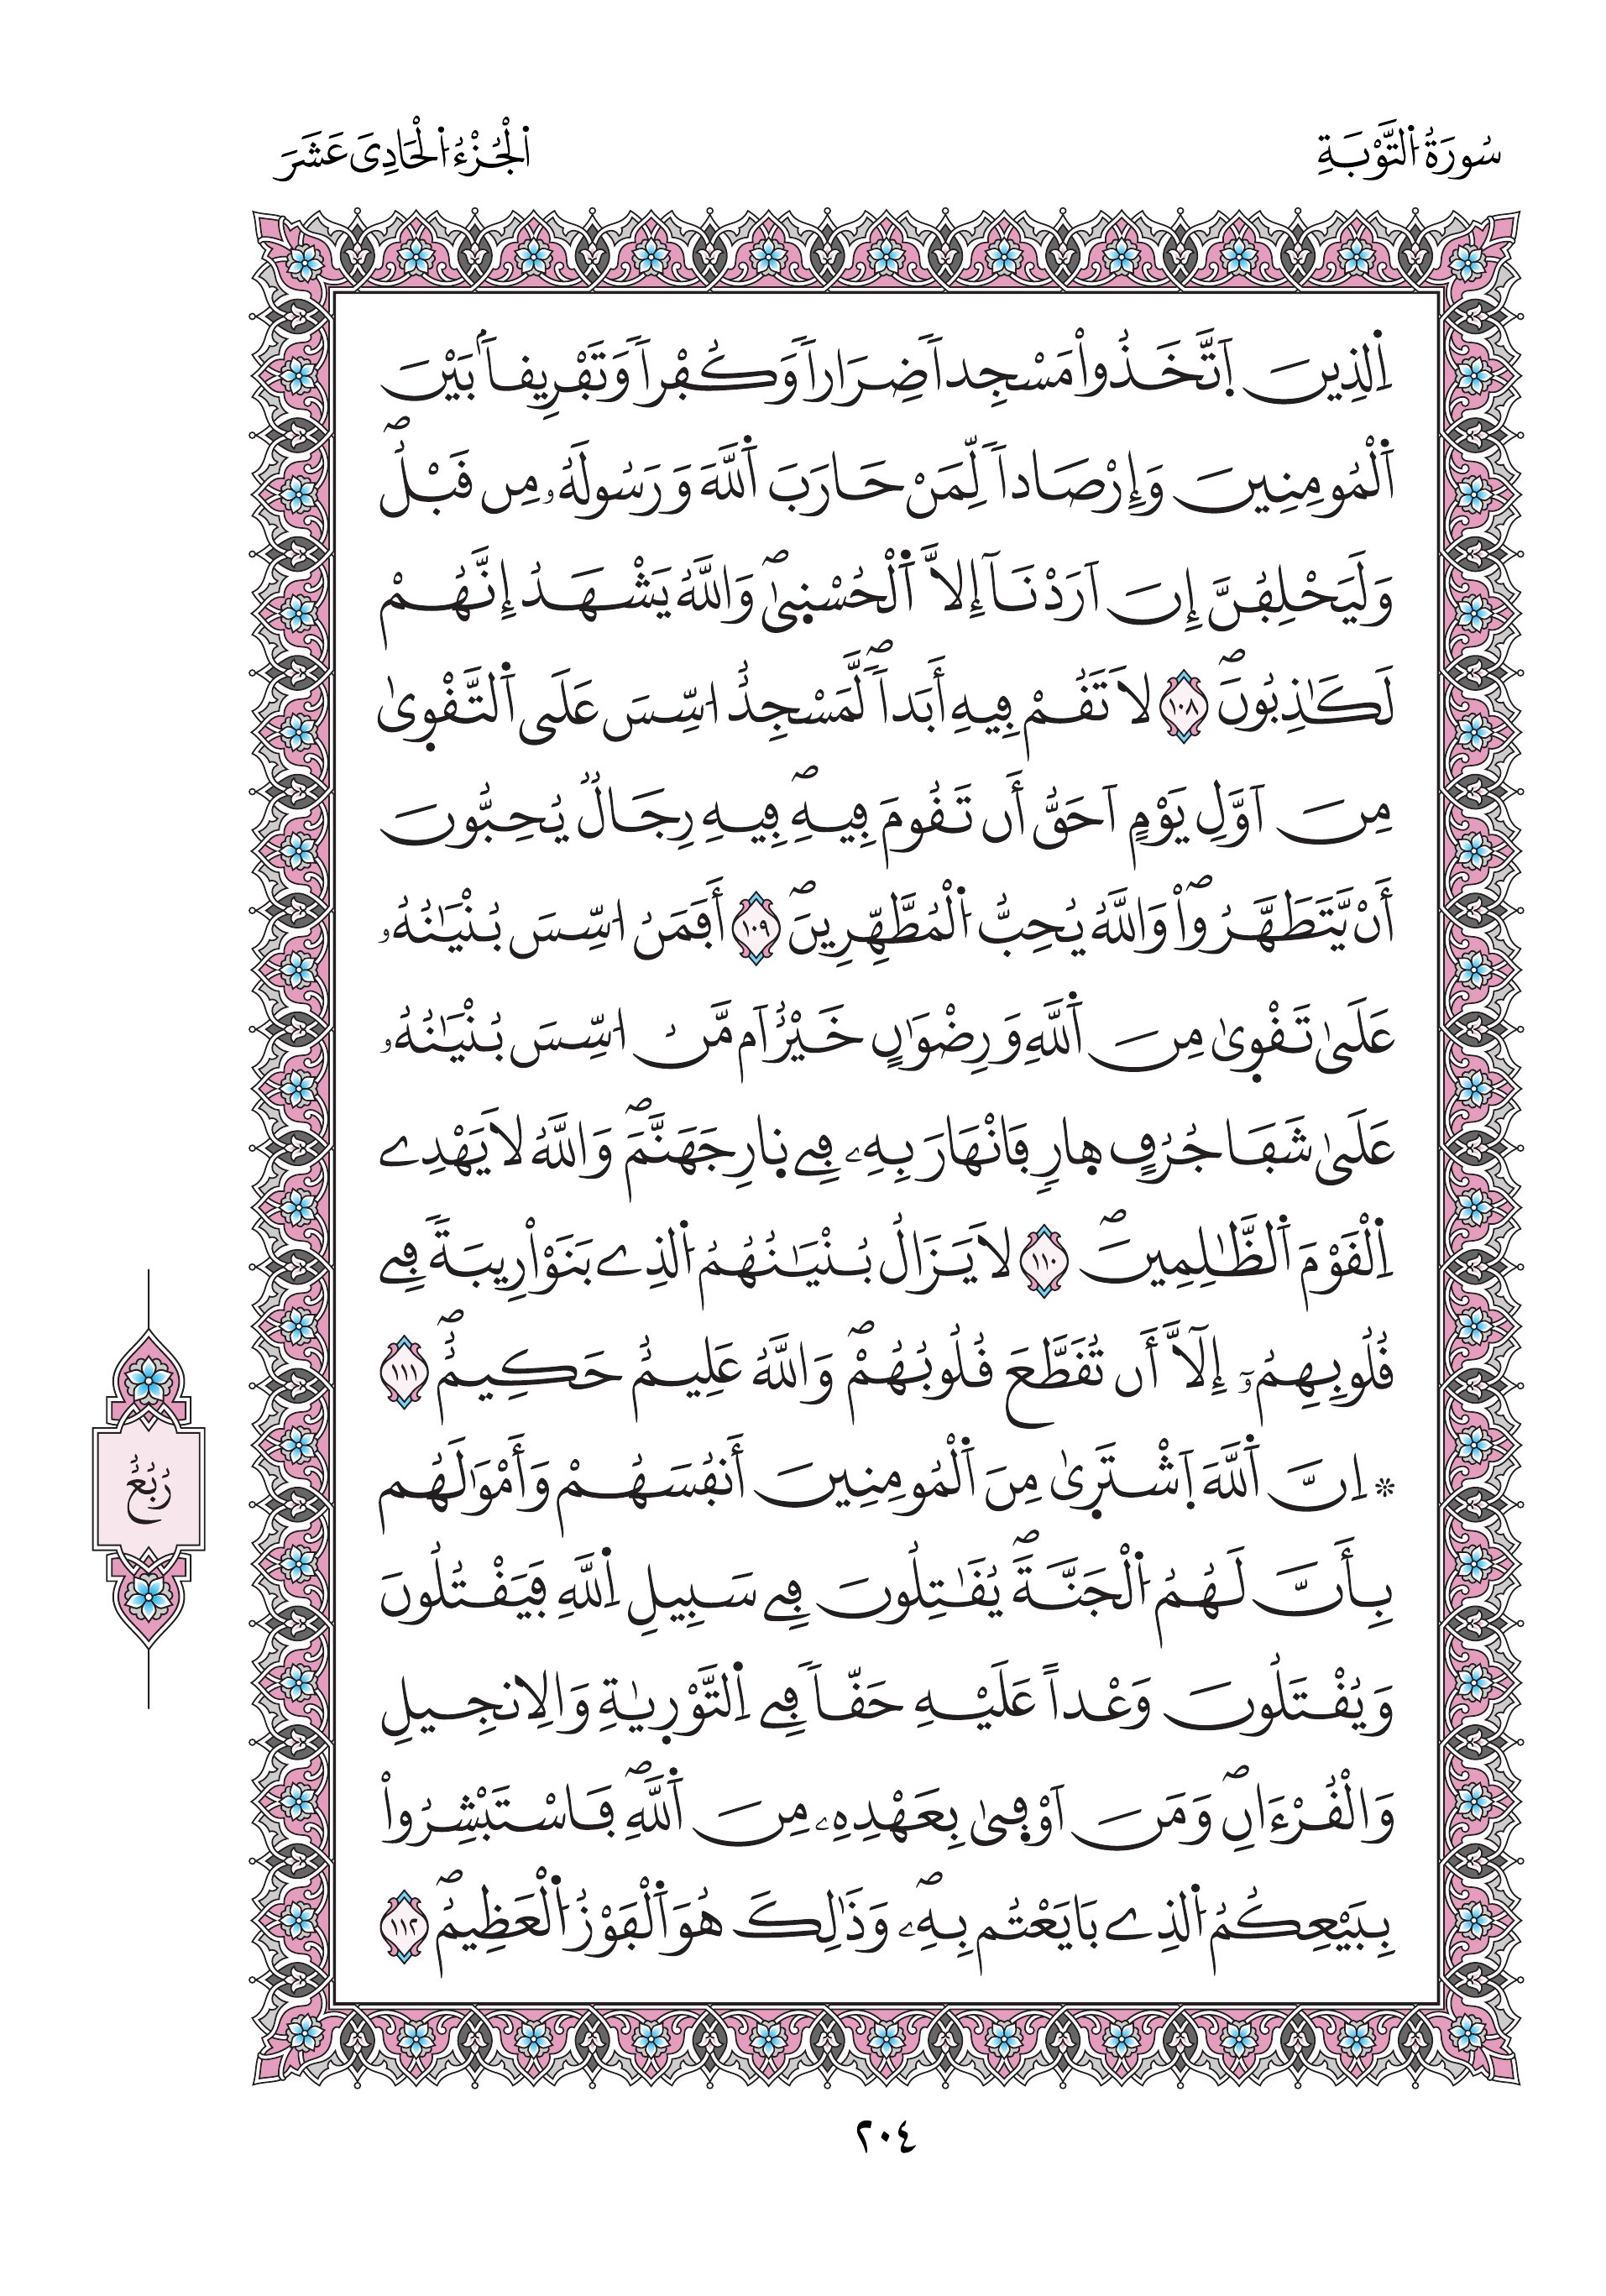 سُورَةُ التَّوْبَةِ
الْجُزْءُ الْحَادِىَ عَشَرَ
اِ۬لذِينَ اَ۪تَّخَذُواْ مَسْجِداٗ ضِرَاراٗ وَكُفْراٗ وَتَفْرِيقاَۢ بَيْنَ
اَ۬لْمُومِنِينَ وَإِرْصَاداٗ لِّمَنْ حَارَبَ اَ۬للَّهَ وَرَسُولَهُۥ مِن قَبْلُۖ
وَلَيَحْلِفُنَّ إِنَ اَرَدْنَآ إِلاَّ اَ۬لْحُسْن۪يٰۖ وَاللَّهُ يَشْهَدُ إِنَّهُمْ
لَكَٰذِبُونَۖ ١٠٨ لَا تَقُمْ فِيهِ أَبَداٗۖ لَّمَسْجِدٌ ا۟سِّسَ عَلَى اَ۬لتَّقْو۪يٰ
مِنَ اَوَّلِ يَوْمٍ اَحَقُّ أَن تَقُومَ فِيهِۖ فِيهِ رِجَالٞ يُحِبُّونَ
أَنْ يَّتَطَهَّرُواْۖ وَاللَّهُ يُحِبُّ اُ۬لْمُطَّهِّرِينَۖ ١٠٩ أَفَمَنُ ا۟سِّسَ بُنْيَٰنُهُۥ
عَلَىٰ تَقْو۪يٰ مِنَ اَ۬للَّهِ وَرِضْوَٰنٍ خَيْرٌ اَم مَّنُ ا۟سِّسَ بُنْيَٰنُهُۥ
عَلَىٰ شَفَا جُرُفٍ ه۪ارٖ فَانْهَارَ بِهِۦ فِے ن۪ارِ جَهَنَّمَۖ وَاللَّهُ لَا يَهْدِے
اِ۬لْقَوْمَ اَ۬لظَّٰلِمِينَۖ ١١٠ لَا يَزَالُ بُنْيَٰنُهُمُ اُ۬لذِے بَنَوْاْ رِيبَةٗ فِے
قُلُوبِهِمُۥٓ إِلَّآ أَن تُقَطَّعَ قُلُوبُهُمْۖ وَاللَّهُ عَلِيمٌ حَكِيمٌۖ ١١١
۞ اِنَّ اَ۬للَّهَ اَ۪شْتَر۪يٰ مِنَ اَ۬لْمُومِنِينَ أَنفُسَهُمْ وَأَمْوَٰلَهُم
بِأَنَّ لَهُمُ اُ۬لْجَنَّةَۖ يُقَٰتِلُونَ فِے سَبِيلِ اِ۬للَّهِ فَيَقْتُلُونَ
وَيُقْتَلُونَ وَعْداً عَلَيْهِ حَقّاٗ فِے اِ۬لتَّوْر۪يٰةِ وَالِانجِيلِ
وَالْقُرْءَانِۖ وَمَنَ اَوْف۪يٰ بِعَهْدِهِۦ مِنَ اَ۬للَّهِۖ فَاسْتَبْشِرُواْ
بِبَيْعِكُمُ اُ۬لذِے بَايَعْتُم بِهِۦۖ وَذَٰلِكَ هُوَ اَ۬لْفَوْزُ اُ۬لْعَظِيمُۖ ١١٢
رُبُعٌ
٢٠٤